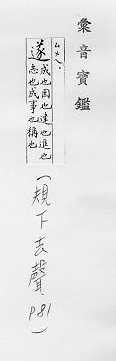 彙音寶鑑
ㄙㄨㄟˋ
遂
成也因也達也進也
志也成事也稱也
(規下去聲 P81)